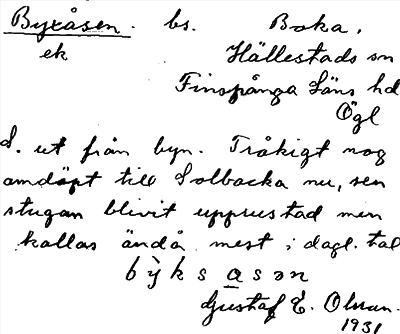 Byxåsen. bs. Boka.
ek Hällestads sn
Finspånga Läns hd
Ögl
L. ut från byn. Tråkigt nog
omdöpt till Solbacka nu, sen
stugan blivit upprustad men
kallas ändå mest i dagl. tal
bỳksasən
Gustaf E. Olman.
1931